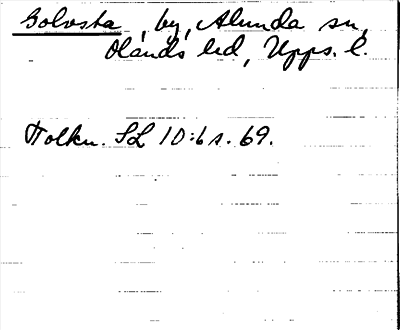 Golvsta, by, Alunda sn,
Olands hd, Upps. l.
Tolkn. SL 10:6 s. 69.